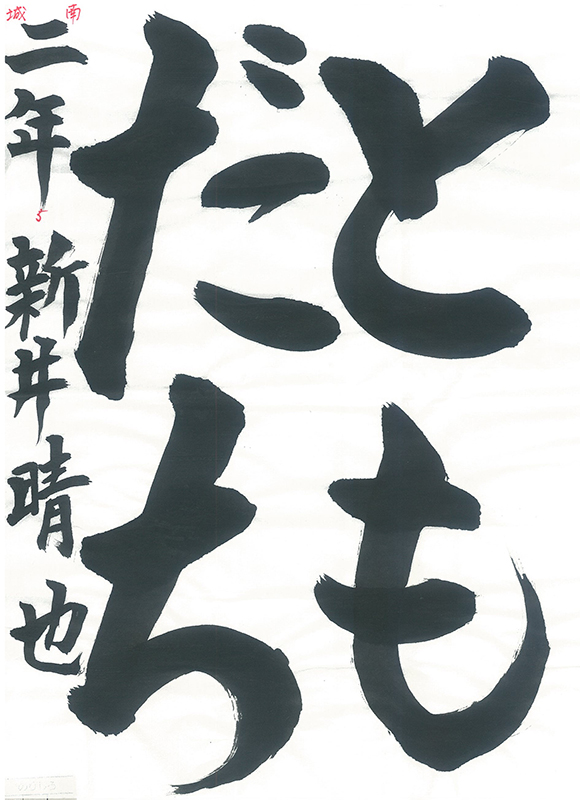 とも
だち
二年 新井晴也
城南
5